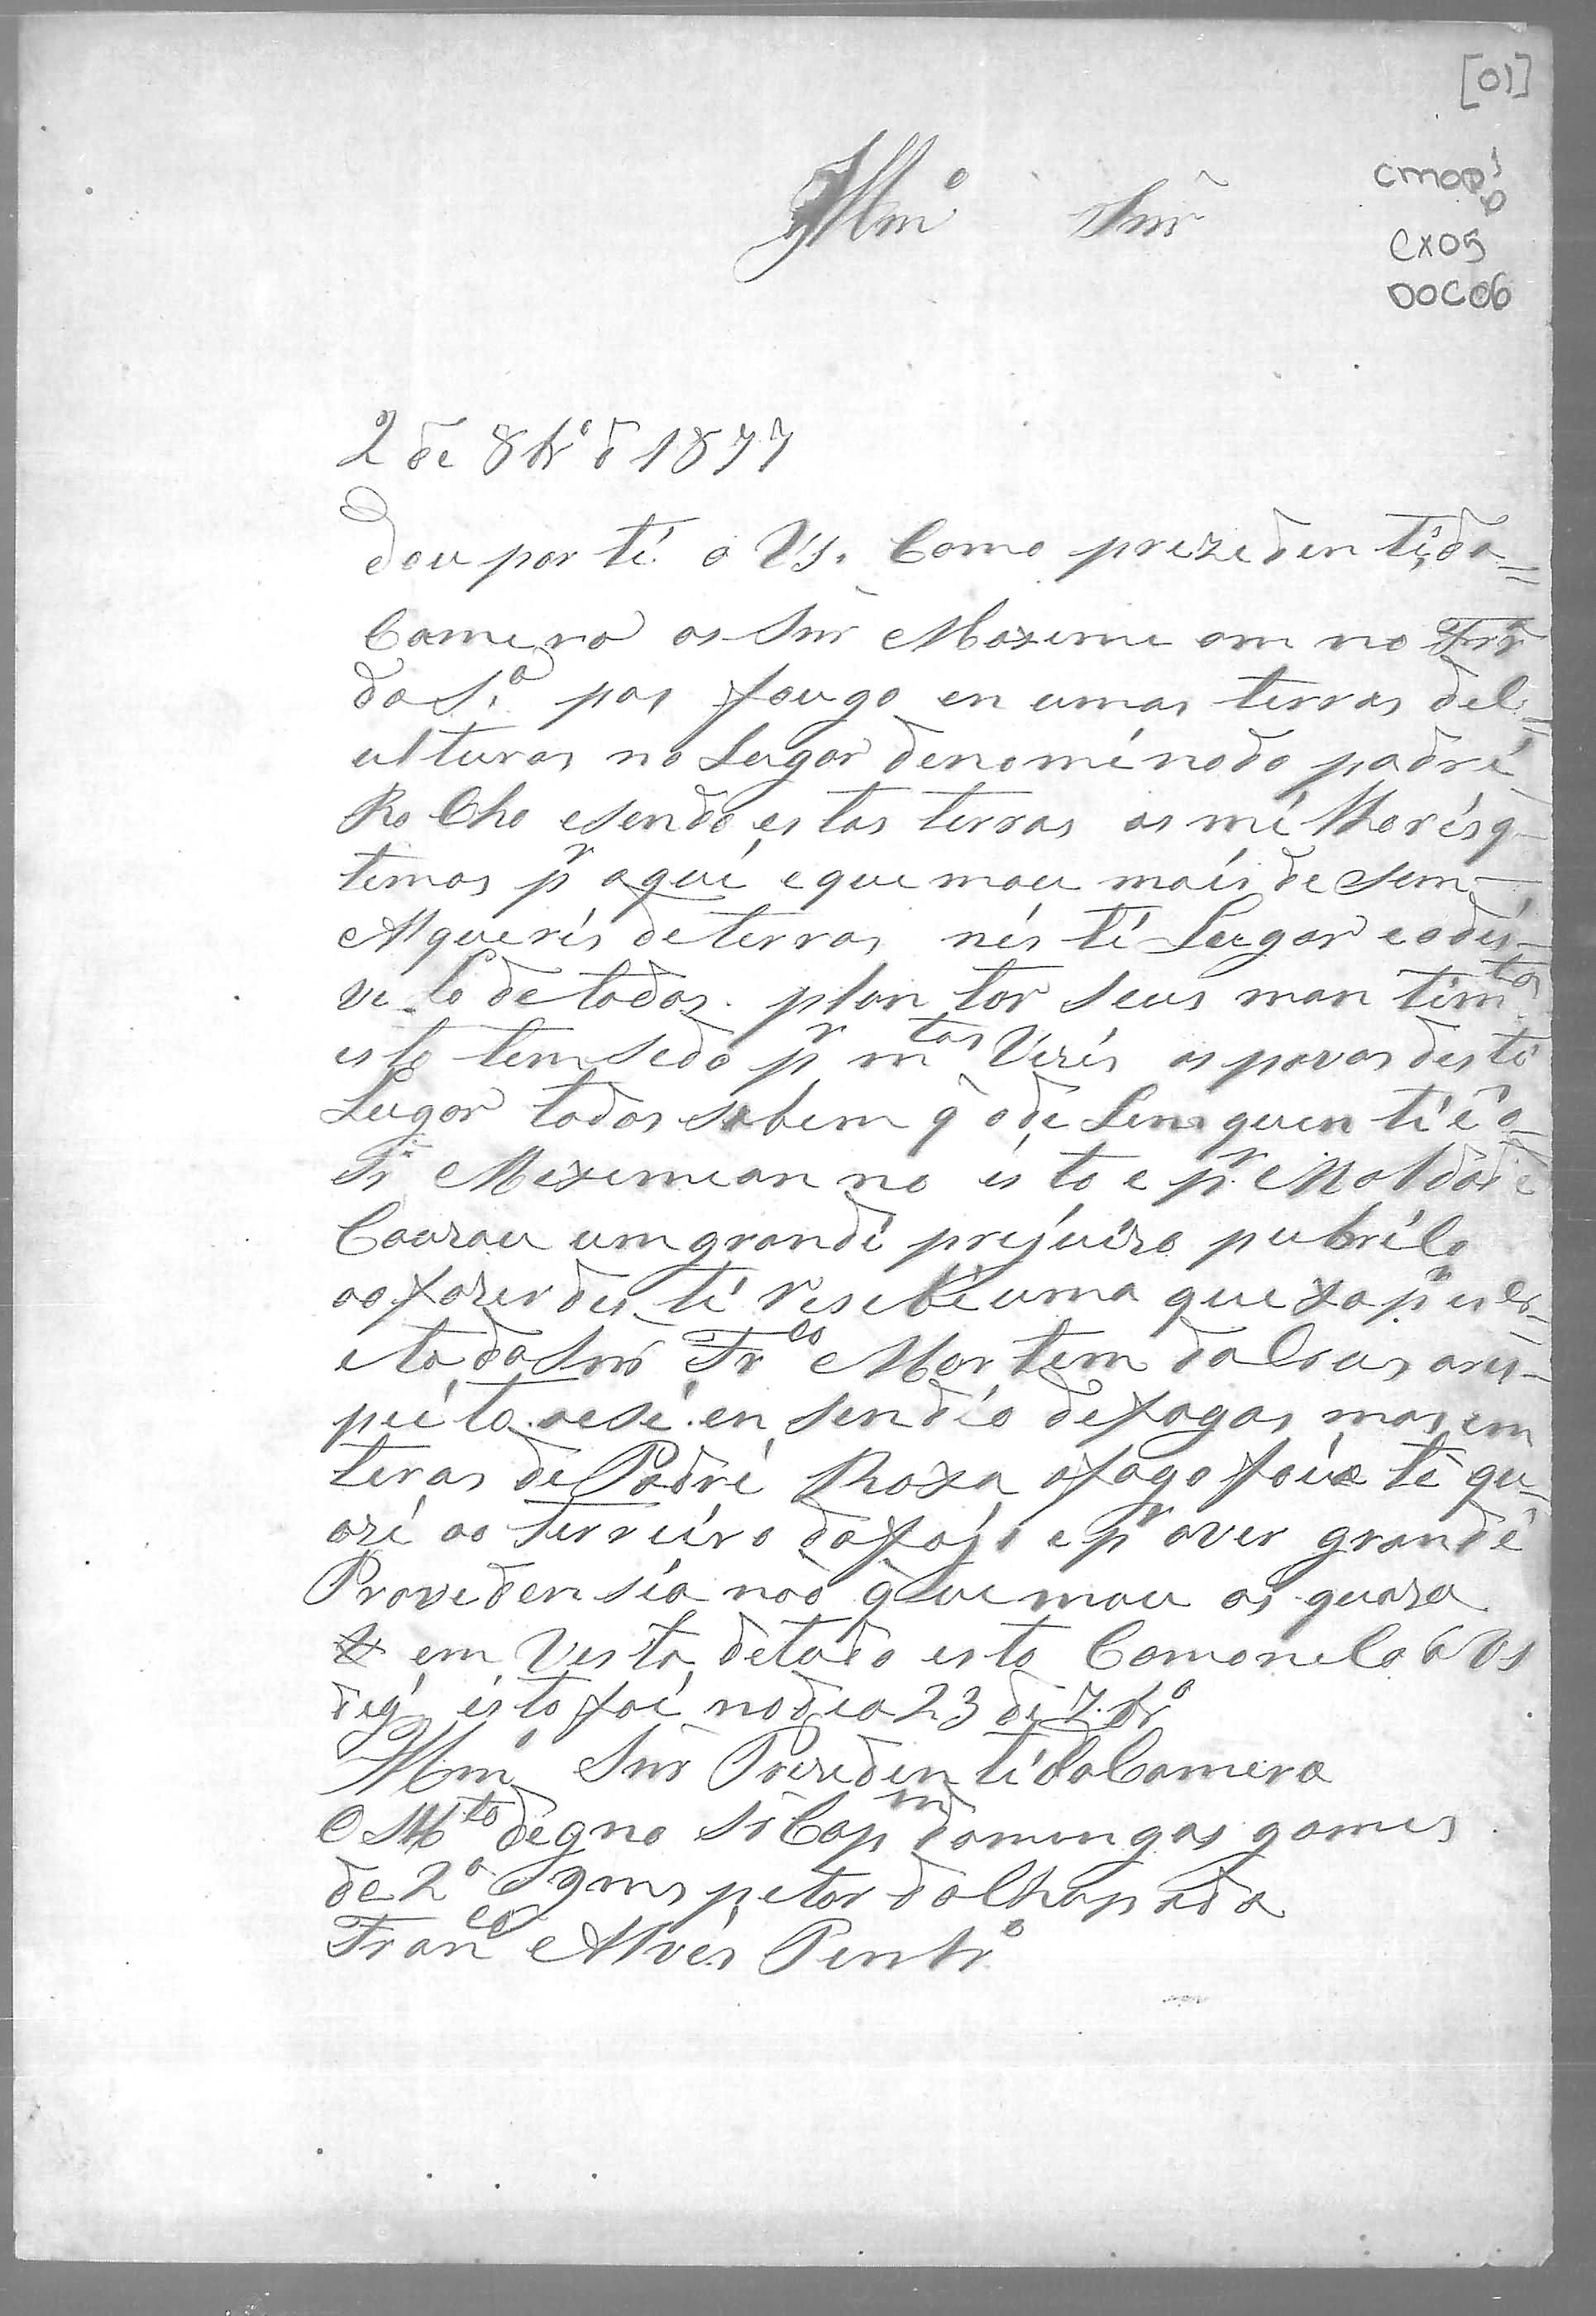 [01]
Illmº Snr
CMOP
CX05
DOC06
2 de 8brº d 1877
dou por té a VS. Como prezedenti da=
Camera os Snr Maxemi am no Frr
da Sª pos fougo en umas terras del=
ulturas no Lugar denoménado padré
Ro Cho esendo estas terras as mé lhorés q
temos pr aqui e queimou mais de sem
Alquerís de terras nés té Lugar e adis-
ve lo de todos plan tar seus man timtos
esto tem sedo pr mtas Vezés os povos desté
Lugar todos sabem q̃ o de Lenquen té é o
Sr Mexemian no ésto e pr Maldadé
Cauzou um grandé prejuizo pubrilo
ao fazer des té resebi uma quexa pr es cr-
eto do Snr Frco Martem da Crus ares-
peito. aesé. en sendio de fogos mas em
teras de Padré Roxa o fogo foi a té qu-
azé ao terreiro da fazª e pr aver grandé
Providensia não q̃ueimou as guaza
em Vesta de tudo esto Comonelo a VS
deg ésto foi no dia 23 di 7.brº
Illmº Snr Prezedenti da Camera
O Mto degno Sr Capm domingos gomes
de 2ª O Ynspetor da Chapada
Francо Alvés Pentrº